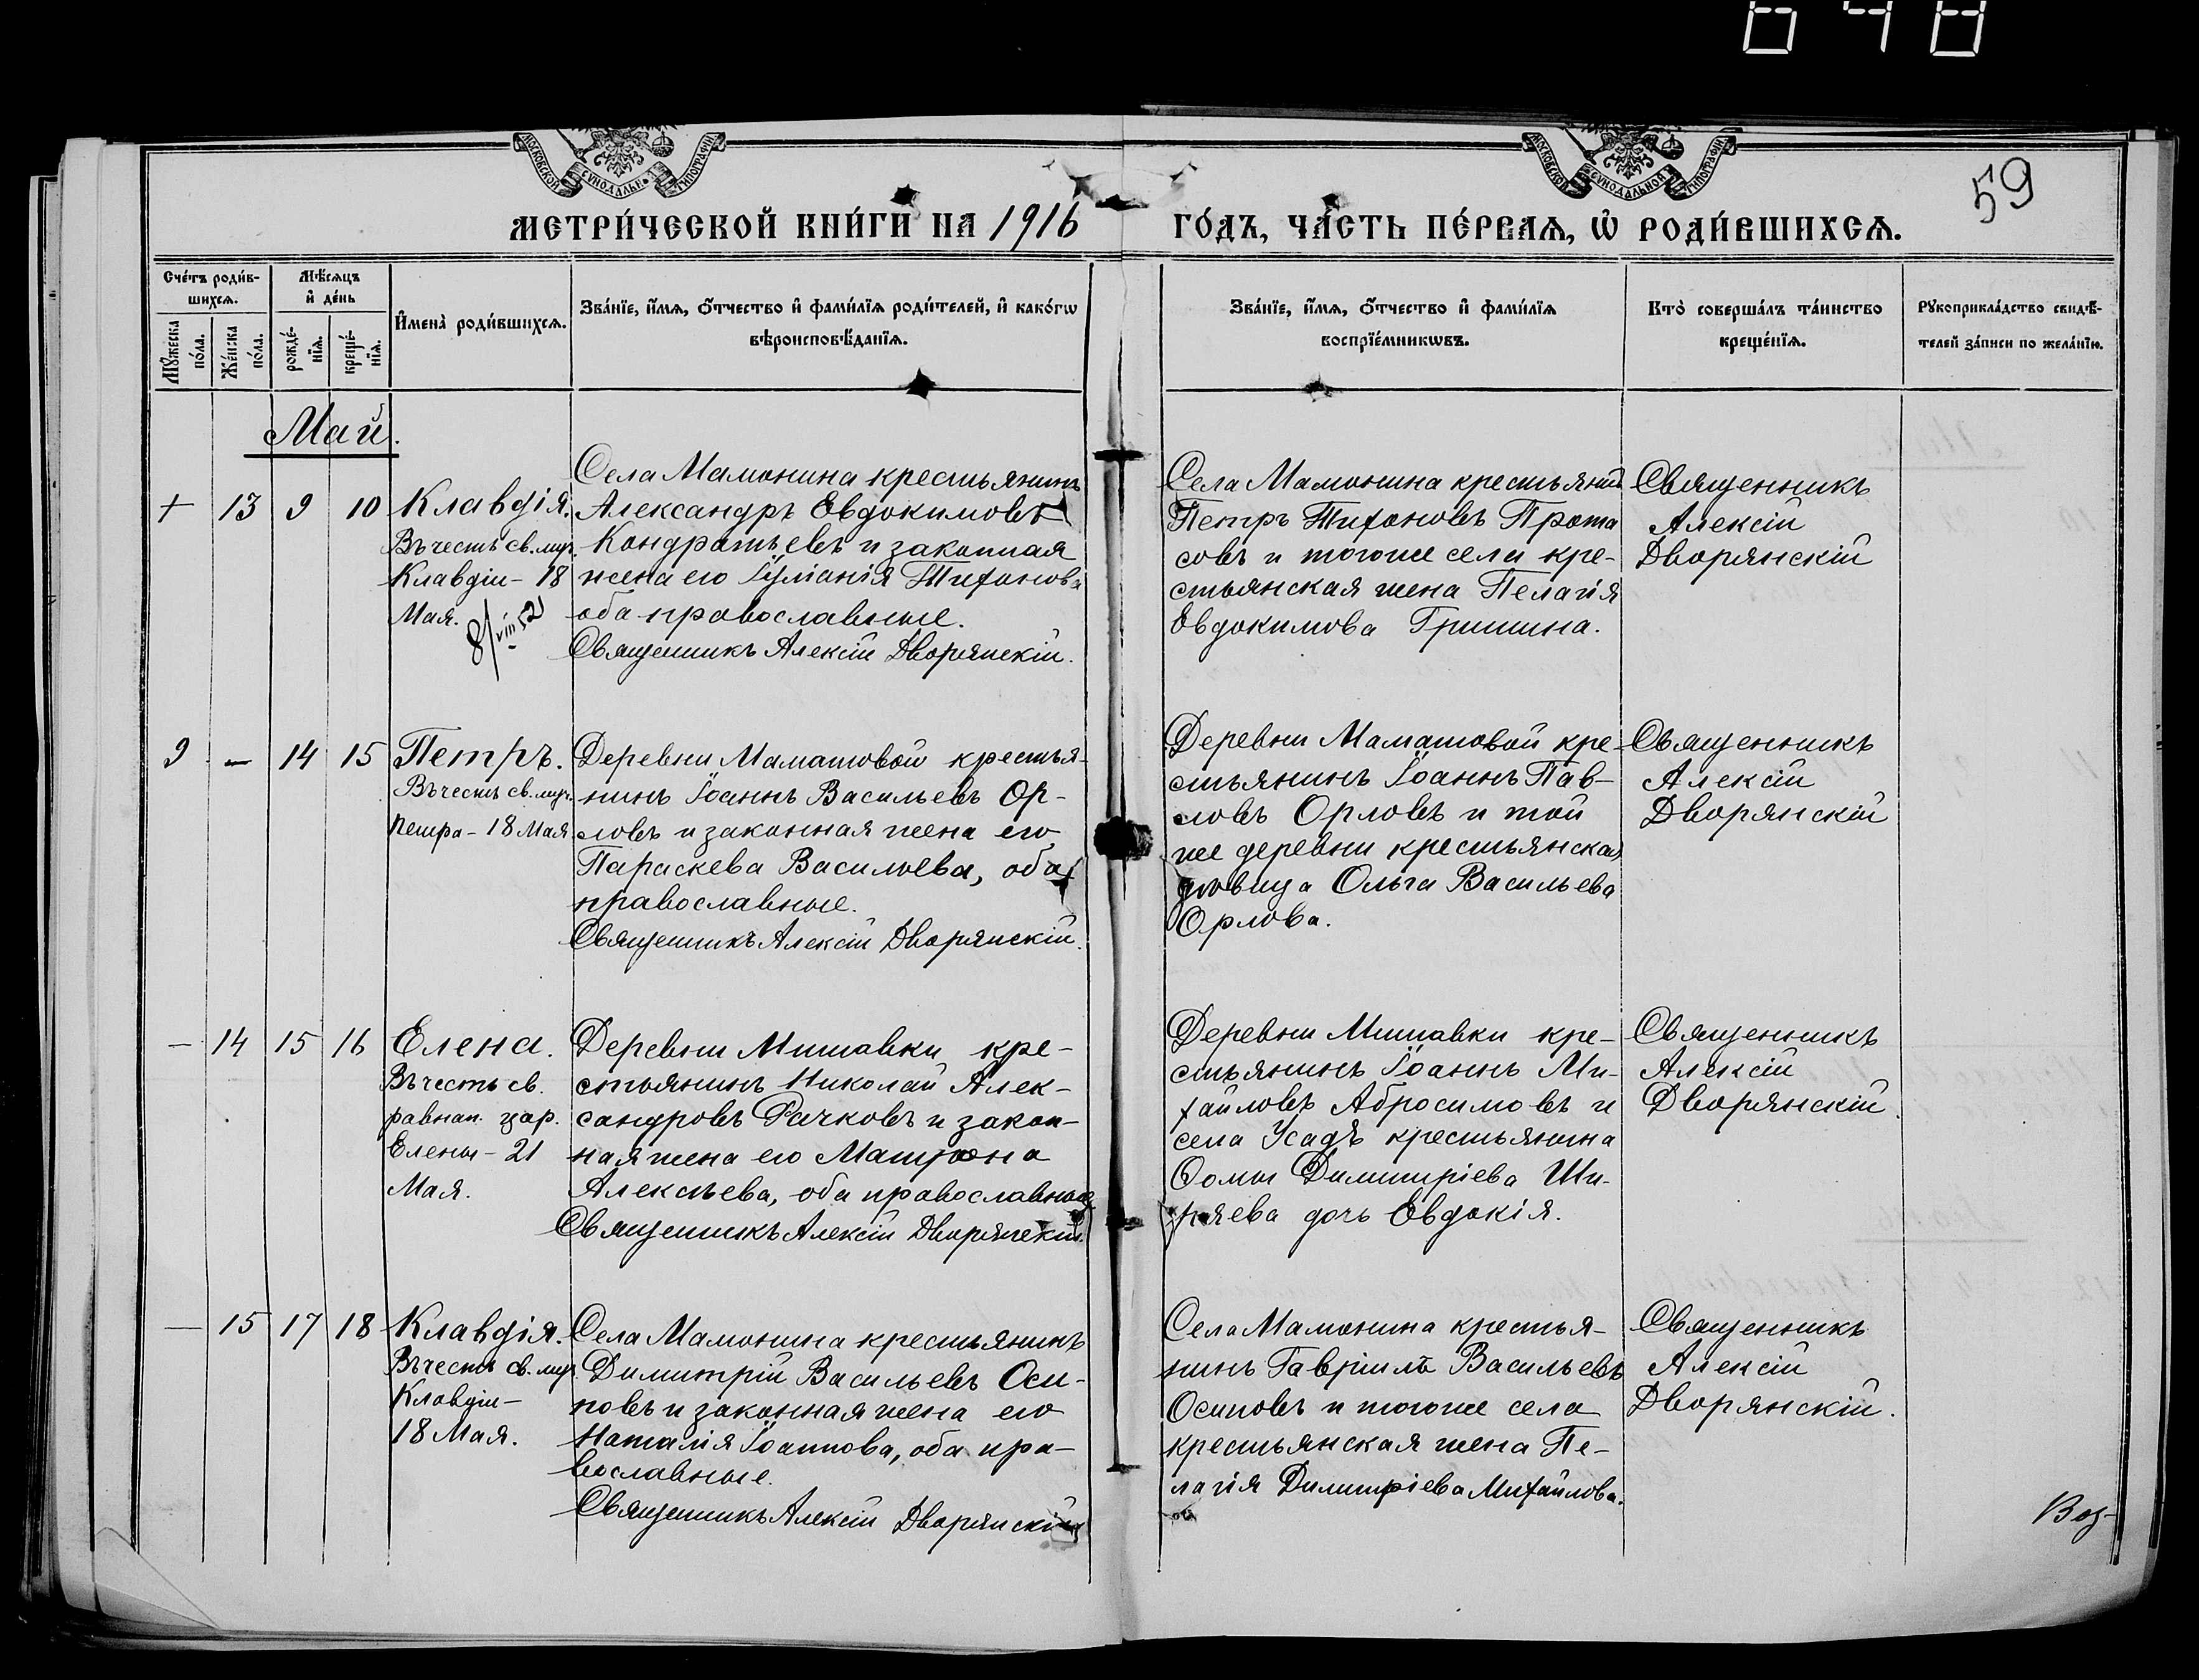 648
МОСКОВСКОЙ СѴНОДАЛЬНОЙ ТИПОГРАФІИ
МОСКОВСКОЙ СѴНОДАЛЬНОЙ ТИПОГРАФІИ
МЕТРИ́ЧЕСКОЙ КНИ́ГИ НА 1916 ГО́ДЪ, ЧА́СТЬ ПЕ́РВАѦ, Ѡ҆ РОДИ́ВШИХСѦ.
59
Сче́тъ роди́в-
шихсѧ.
Мꙋ́жеска
по́ла.
Же́нска
по́ла.
Мѣ́сѧцъ
и҆ де́нь
рожде́-
нїѧ.
креще́-
нїѧ.
И҆мена̀ роди́вшихсѧ.
Зва́нїе, и҆́мѧ, ѻ҆́тчество и҆ фами́лїѧ роди́телей, и҆ како́гѡ
вѣроисповѣ́данїѧ.
Зва́нїе, и҆́мѧ, ѻ҆́тчество и҆ фами́лїѧ
воспрїе́мникѡвъ.
Кто̀ соверша́лъ та́инство
креще́нїѧ.
Рꙋкоприкла́дство свидѣ́-
телей за́писи по жела́нїю.
Май.
+ 13 9 10 Клавдія.
Въ честь св. муч.
Клавдіи - 18
Мая.
8/VIII 52
Села Мамонина крестьянинъ
Александръ Евдокимовъ
Кондратьевъ и законная
жена его Іуліанія Тихонова
оба православные.
Священникъ Алексій Дворянскій.
Села Мамонина крестьянин
Петръ Тихоновъ Прота
совъ и тогоже села кре-
стьянская жена Пелагія
Евдокимова Гришина.
Священникъ
Алексій
Дворянскій
9 - 14 15 Петръ.
Въ честь св. муч.
Петра - 18 Мая
Деревни Маматовой крестья-
нинъ Іоаннъ Васильевъ Ор-
ловъ и законная жена его
Параскева Васильева, оба
православные.
Священникъ Алексій Дворянскій.
Деревни Маматовой кре-
стьянинъ Іоаннъ Пав-
ловъ Орловъ и той
же деревни крестьянская
дѣвица Ольга Васильева
Орлова.
Священникъ
Алексій
Дворянскій
- 14 15 16 Елена.
Въ честь св.
равноап. цар.
Елены - 21
Мая.
Деревни Мишавки кре-
стьянинъ Николай Алек-
сандровъ Рачковъ и закон-
ная жена его Матрона
Алексѣева, оба православные
Священникъ Алексій Дворянскій.
Деревни Мишавки кре-
стьянинъ Іоаннъ Ми-
хайловъ Абросимовъ и
села Усадъ крестьянина
Ѳомы Димитріева Ши-
ряева дочь Евдокія.
Священникъ
Алексій
Дворянскій.
- 15 17 18 Клавдія.
Въ честь св. муч.
Клавдіи -
18 Мая.
Села Мамонина крестьянинъ
Димитрій Васильевъ Оси-
повъ и законная жена его
Наталія Іоаннова, оба пра-
вославные.
Священникъ Алексій Дворянскій
Села Мамонина крестья-
нинъ Гавріилъ Васильевъ
Осиповъ и тогоже села
крестьянская жена Пе-
лагія Димитріева Михайлова.
Священникъ
Алексій
Дворянскій.
Воз-